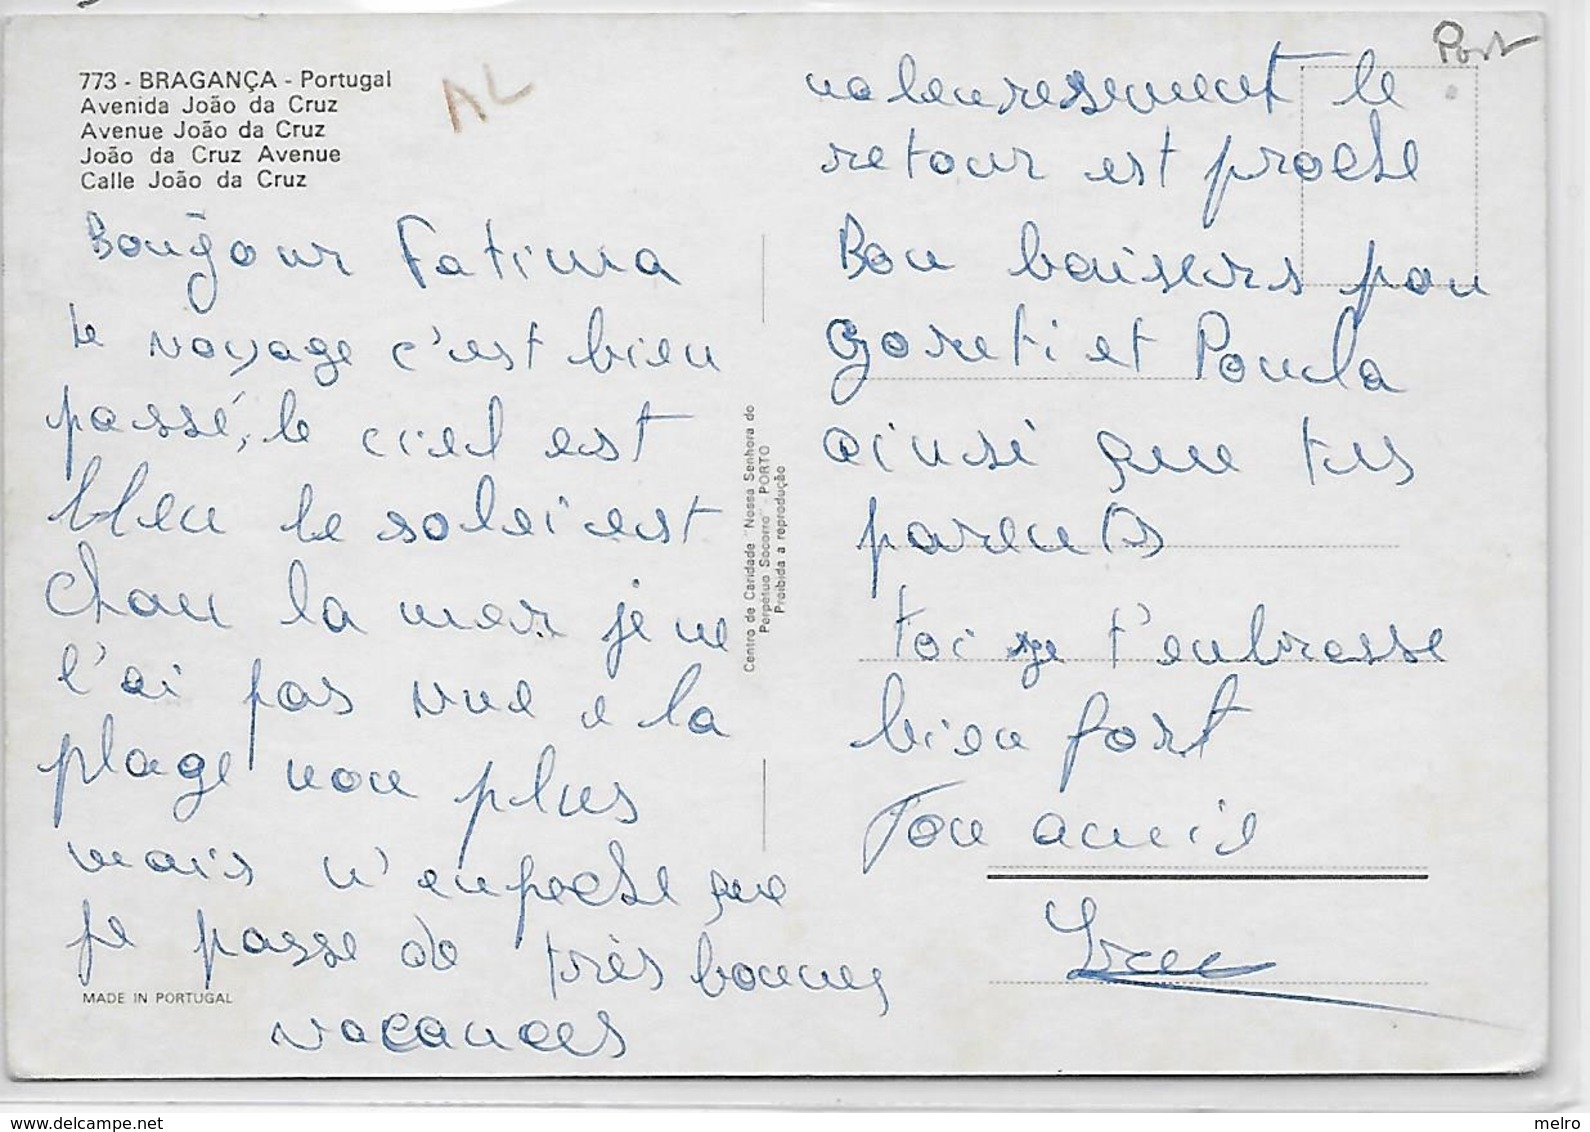 773 - BRAGANÇA - Portugal
Avenida João da Cruz
Avenue João da Cruz
João da Cruz Avenue
Calle João da Cruz
AL
Bonjour Fatima
le voyage c'est bien
passé, le ciel est
bleu le soleil est
chau la mer je ne
l'ai pas vue e la
plage non plus
mais n'enpeche que
je passe de très bonnes
vacances
MADE IN PORTUGAL
Centro de Caridade "Nossa Senhora do
Perpétuo Socorro" - PORTO
Proibida a reprodução
Port
maleuresement le
retour est proche
Bon baisers pou
Goreti et Poula
ainsi que tes
parents
toi je t'enbrasse
bien fort
Ton amie
www.delcampe.net
melro